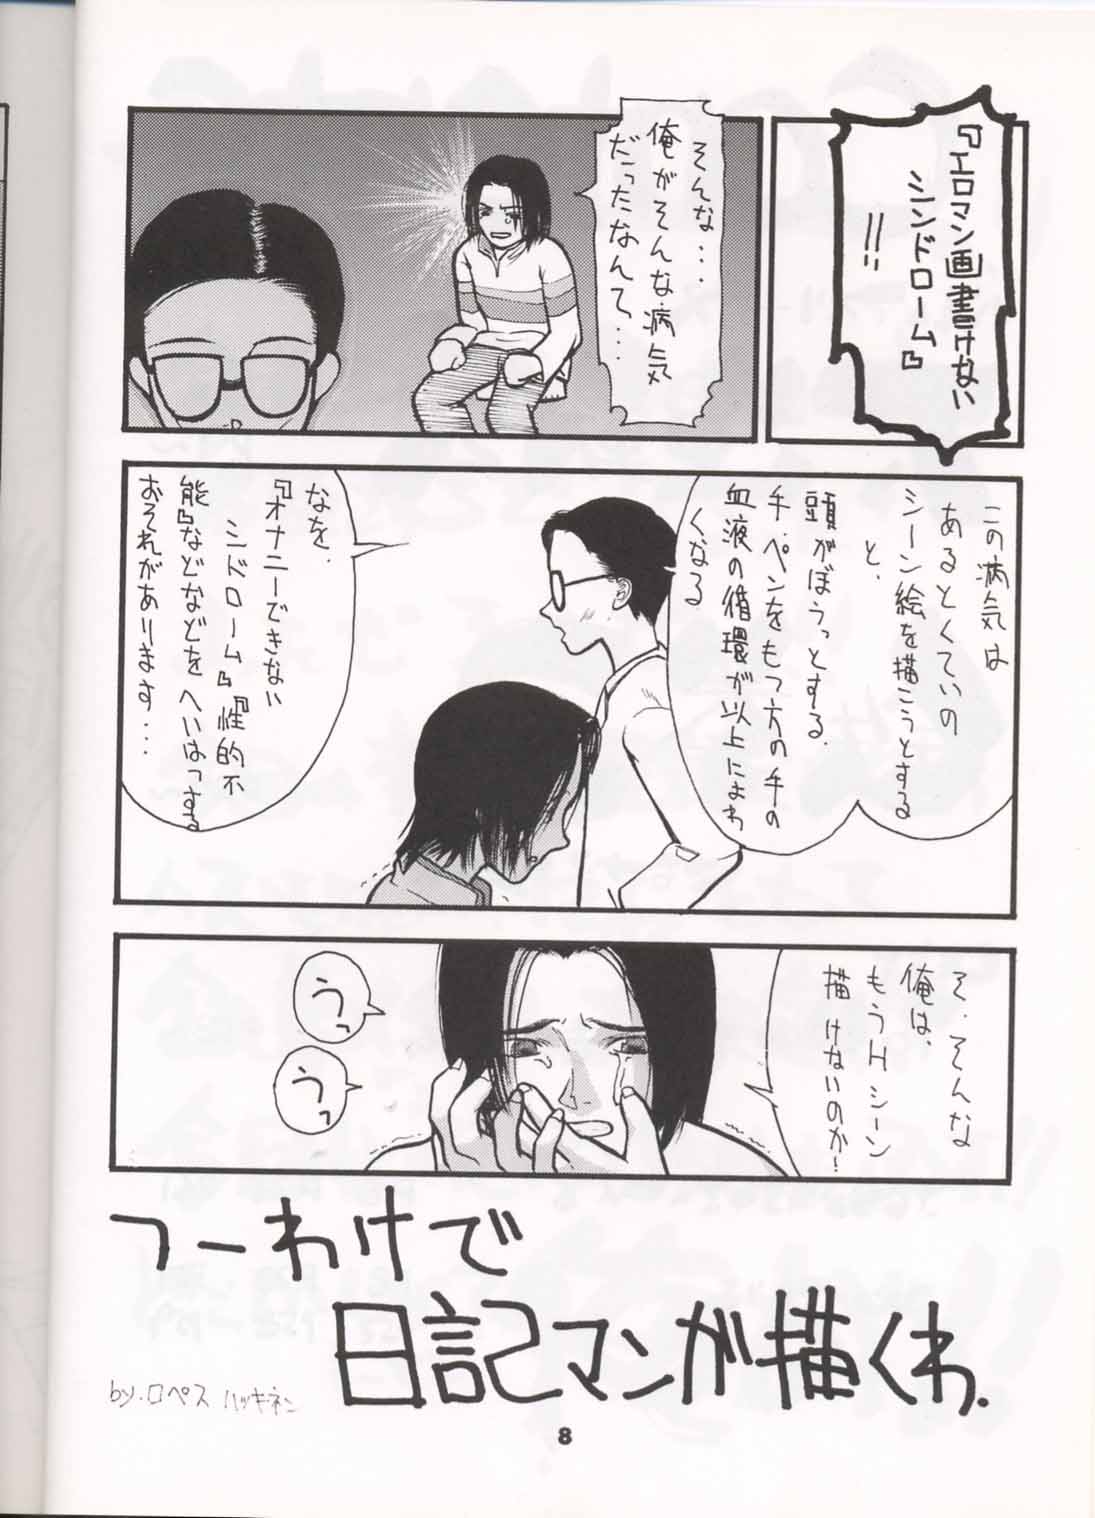 『エロマン画書けない
シンドローム』
!!!
そんな...
俺がそんな病気
だったなんて....
この病気は
あるとくていの
シーン絵を描こうとする
と、
頭がぼうっとする.
手.ペンをもつ方の手の
血液の循環が以上によわ
くなる
なを.
『オナニーできない
シドローム』『性的不
能』などなどを へいはっする
おそれがあります...
そ.そんな
俺は、
もうHシーン
描けないのか!
うっ
うっ
つーわけで
日記マンが描くわ.
by.ロペス ハッキネン
8